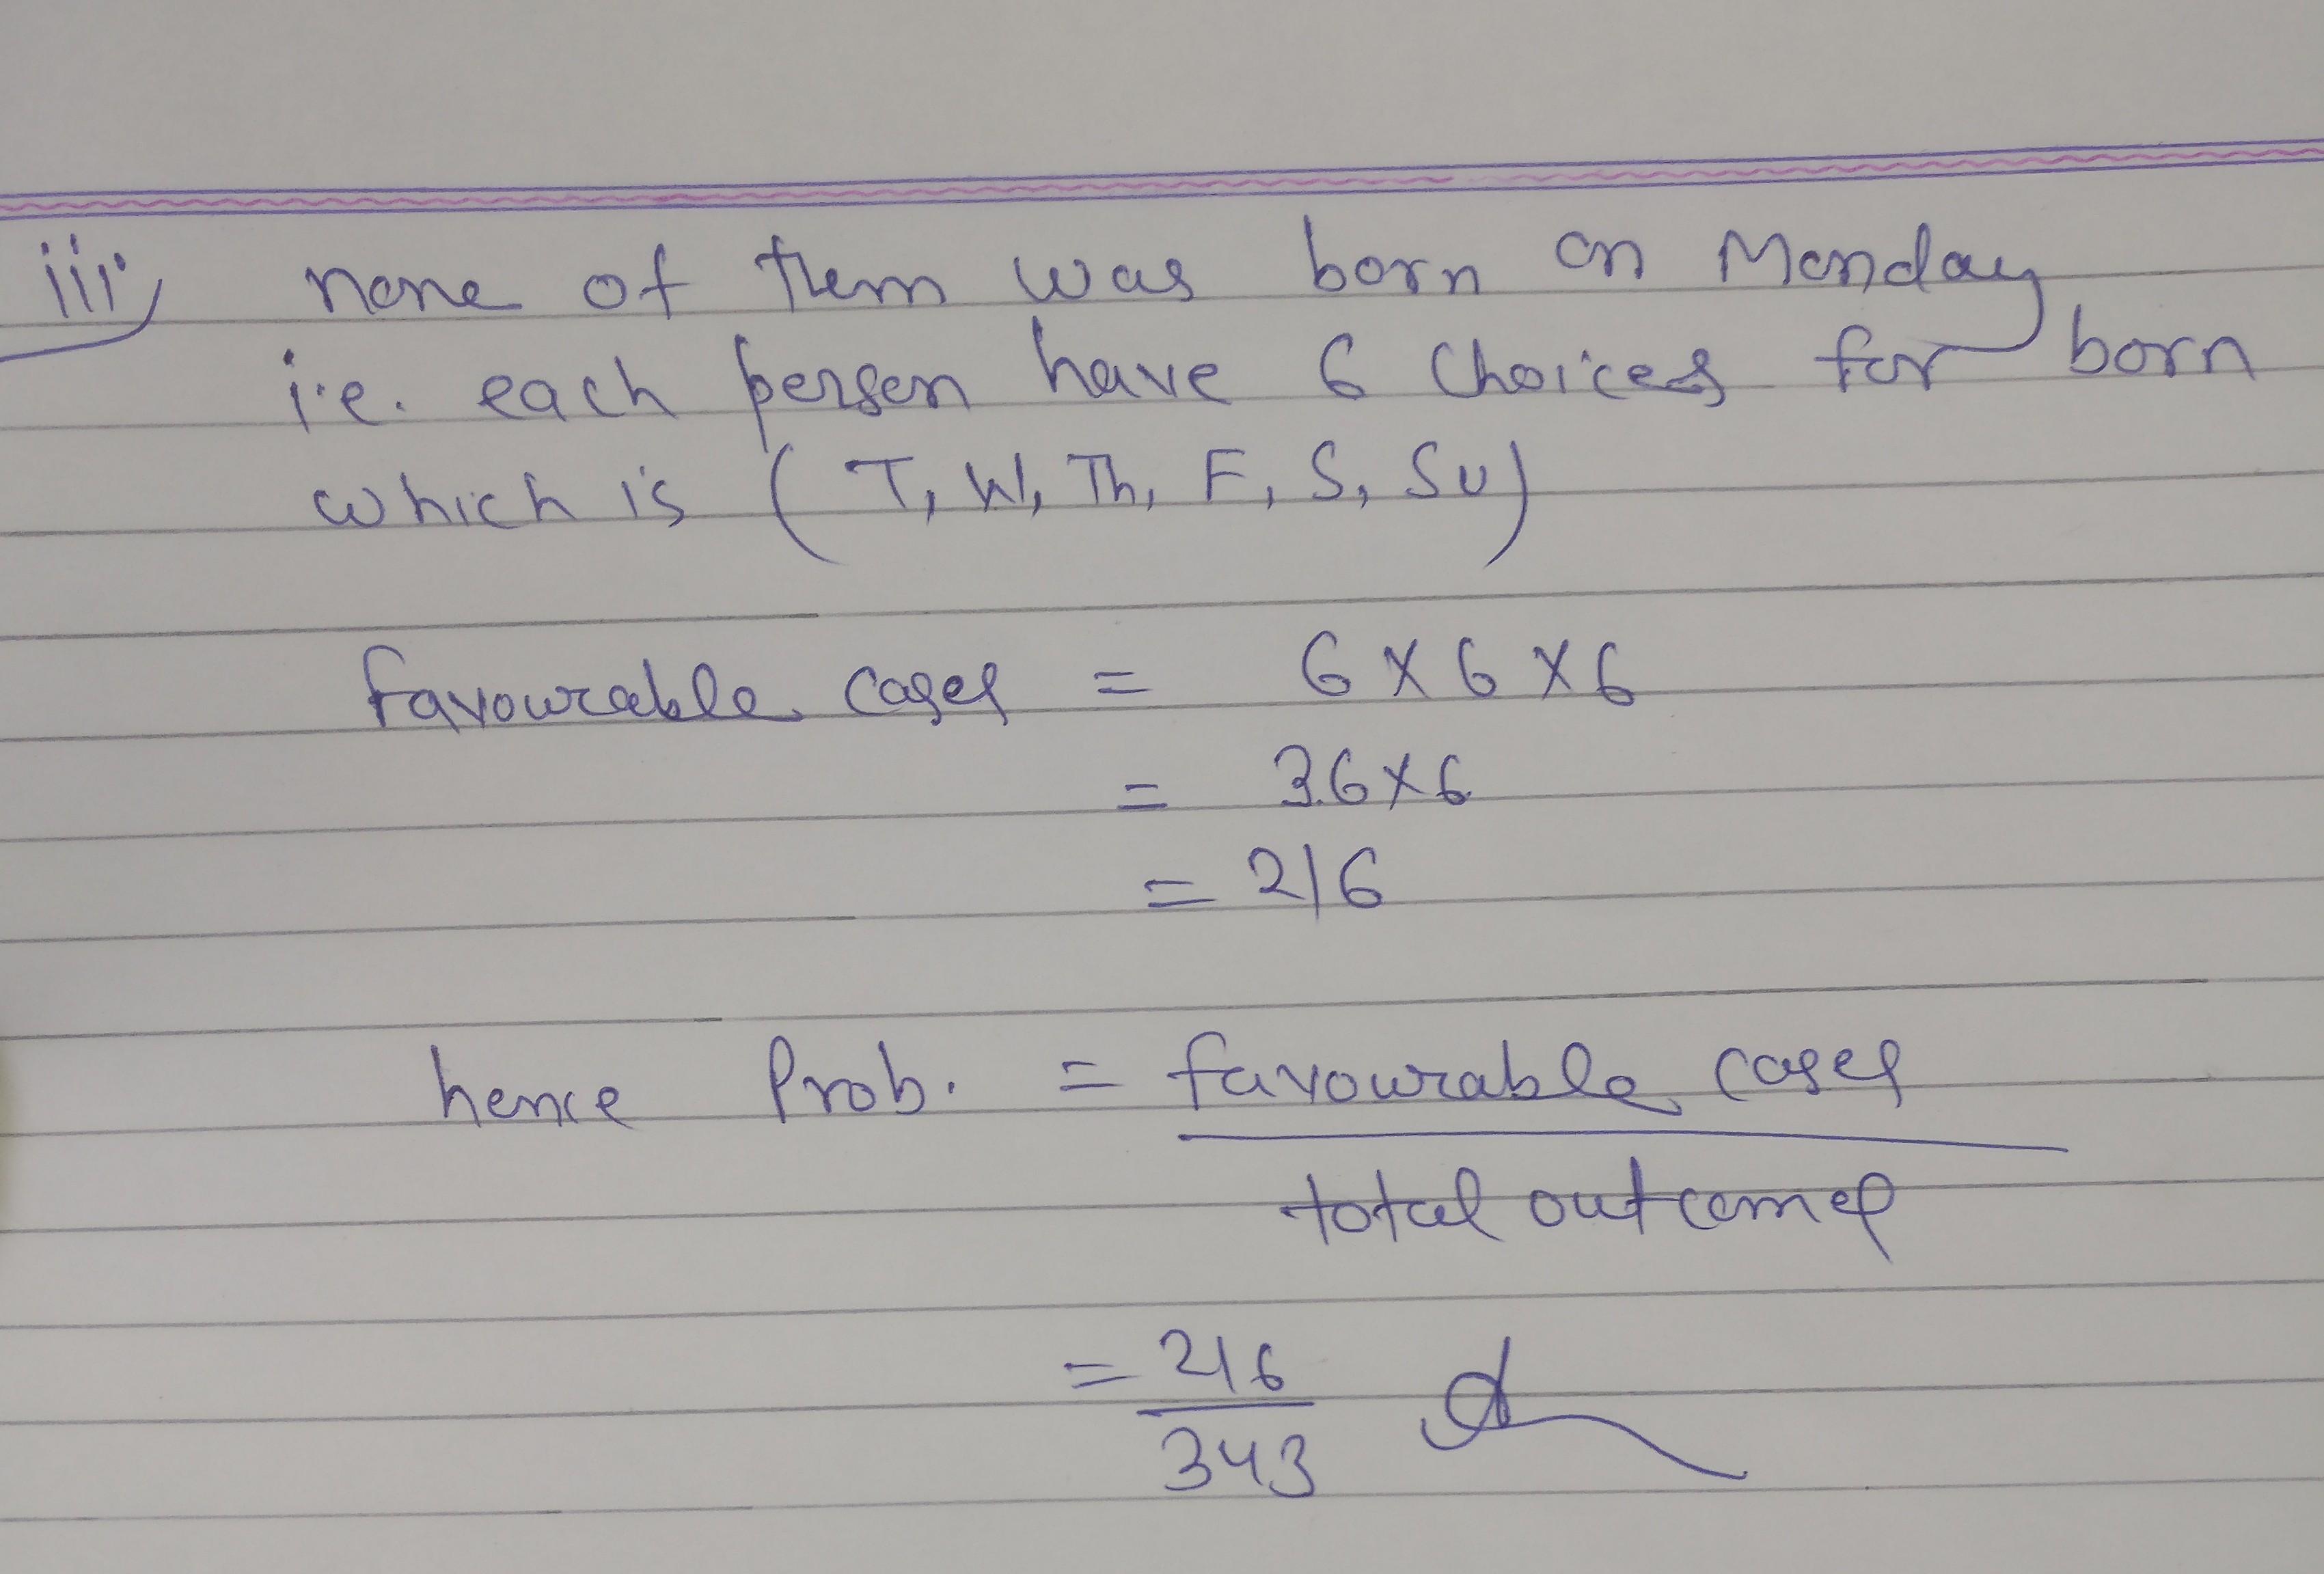 iii, none of them was born on Monday
i.e. each person have 6 choices for born
which is ( T, W, Th, F, S, Su)
favourable cases = 6 X 6 X 6
= 36 X 6
= 216
hence Prob. = favourable cases
total outcomes
= 216
343